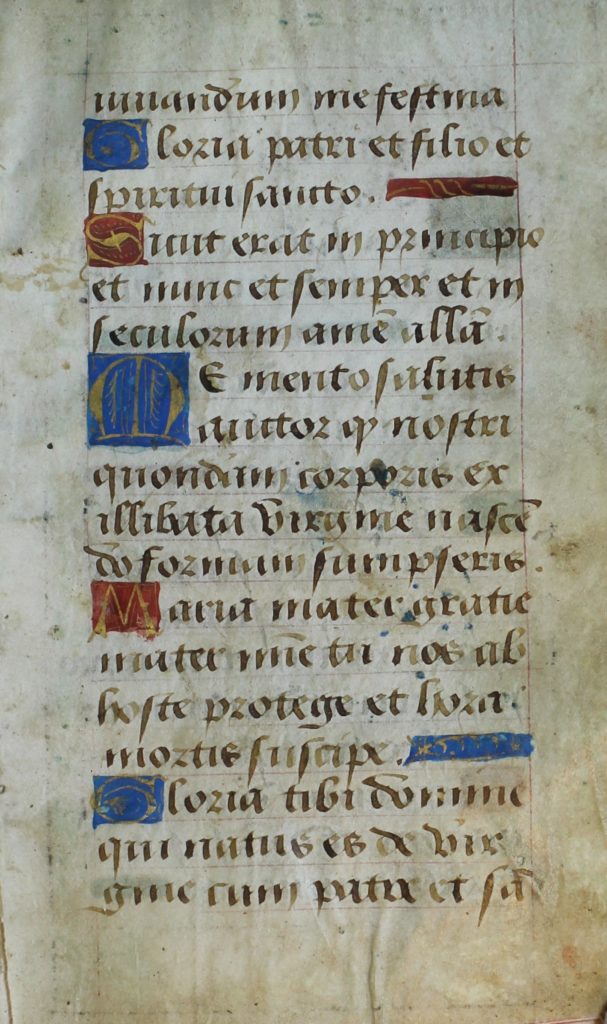 iuuandum me festina
Gloria patri et filio et
spiritui sancto.
Sicut erat in principio
et nunc et semper et in
seculorum amē allā.
MEmento salutis
auctor ꝙ nostri
quondam corporis ex
illibata virgine nascē
do formam sumpseris.
Maria mater gratie
mater mīe tu nos ab
hoste protege et hora
mortis suscipe.
Gloria tibi domine
qui natus es de vir
gine cum patre et sā